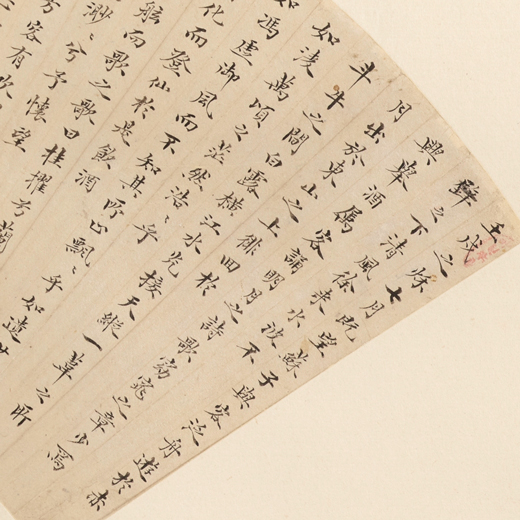 壬戌之秋七月既望蘇子與客泛舟遊於赤
壁之下清風徐來水波不
興舉酒屬客誦明月之詩歌窈窕之章少焉
月出於東山之上徘徊於
斗牛之間白露橫江水光接天縱一葦之所
如淩萬頃之茫然浩〻乎
如馮虛御風而不知其所止飄〻乎如遺世
化而登仙於是飲酒
舷而歌之歌曰桂櫂兮蘭
渺〻兮予懷望
兮客有吹